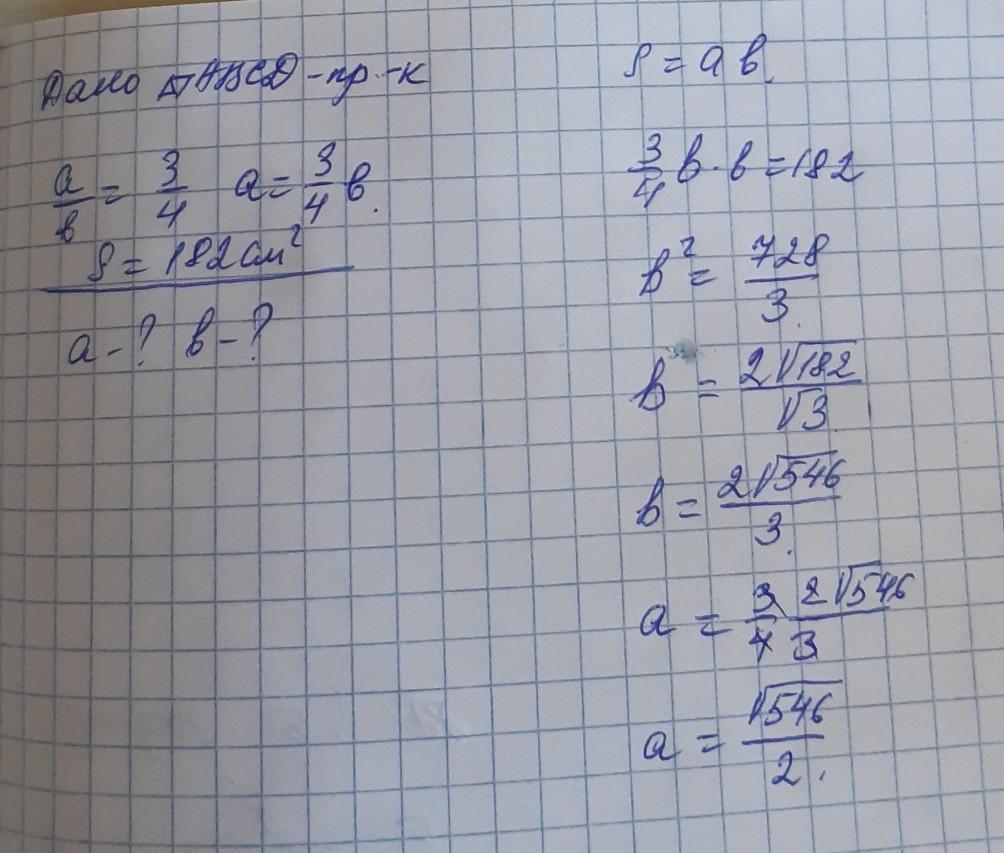 Дано ▱ABCD - пр.-к
a/в = 3/4 a = 3/4 в.
S = 182 см²
a - ? в - ?
S = a в.
3/4 в · в = 182
в² = 728/3.
в = 2√182/√3
в = 2√546/3.
a = 3/4 2√546/3
a = √546/2.